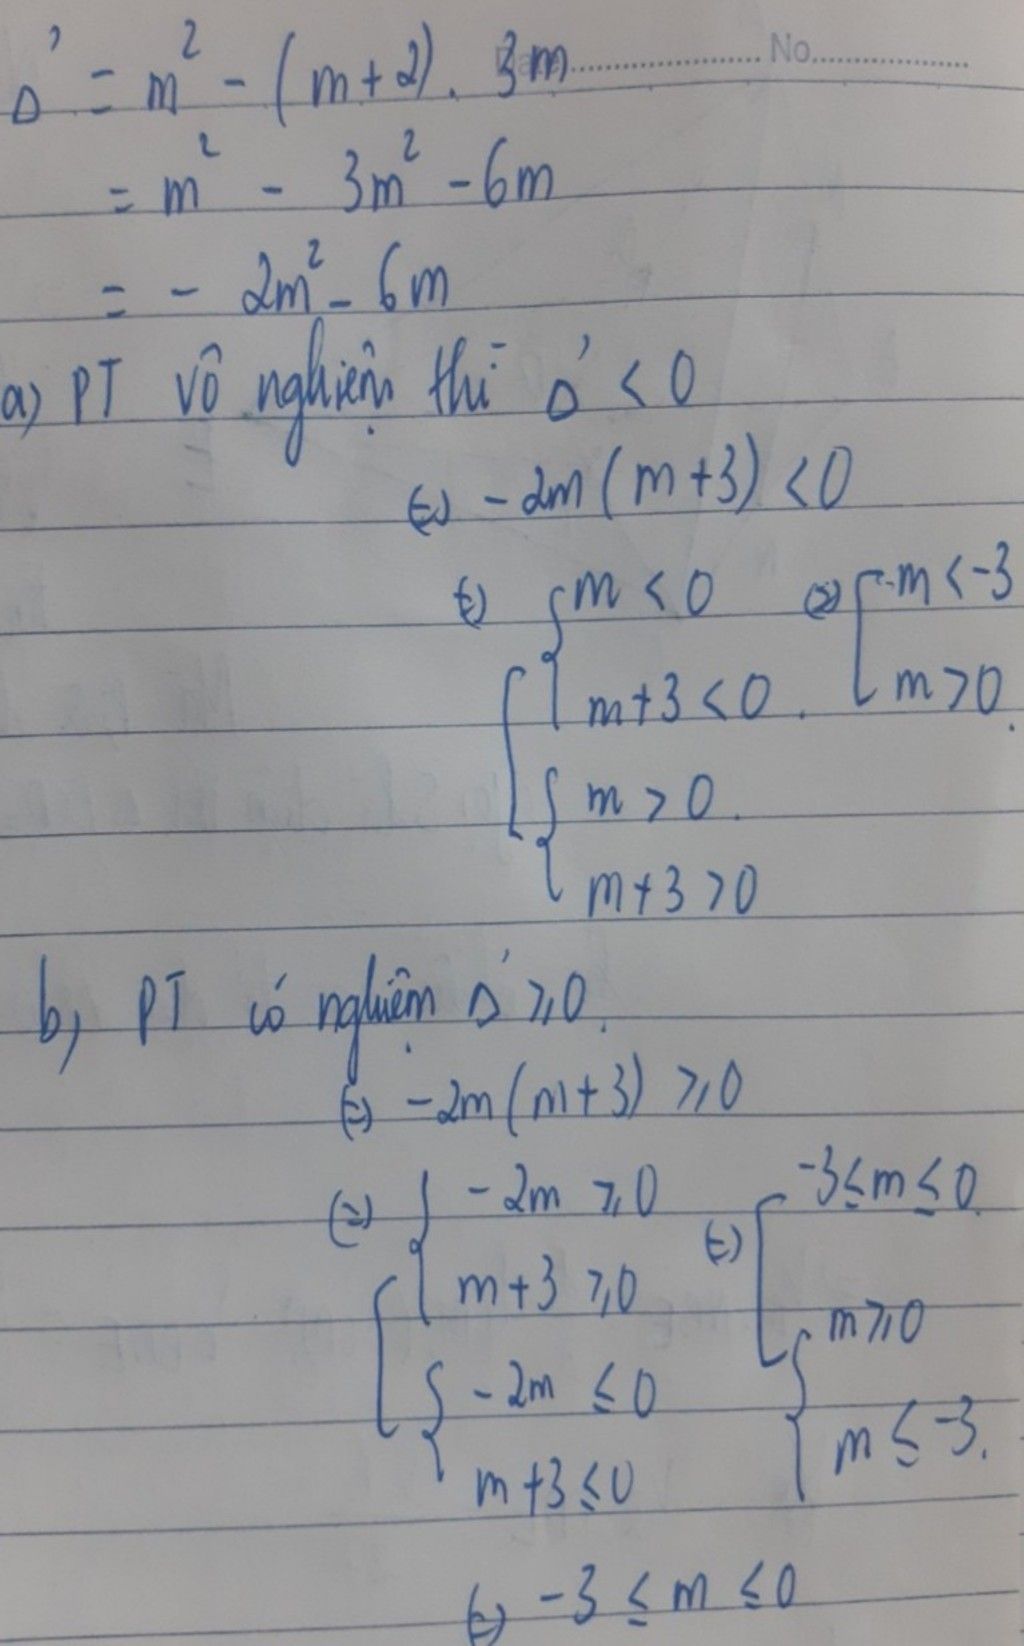 No.
Δ' = m² - (m+2). 3m
= m² - 3m² - 6m
= - 2m² - 6m
a) PT vô nghiệm thì Δ' < 0
(=) -2m (m+3) < 0
(=) [ { m < 0 (=) [ m < -3
m+3 < 0. m > 0.
{ m > 0.
m+3 > 0
b, PT có nghiệm Δ' ⩾ 0.
(=) -2m (m+3) ⩾ 0
(=) [ { -2m ⩾ 0 (=) [ -3 ≤ m ≤ 0.
m+3 ⩾ 0 { m ⩾ 0
{ -2m ≤ 0 m ≤ -3.
m+3 ≤ 0
(=) -3 ≤ m ≤ 0